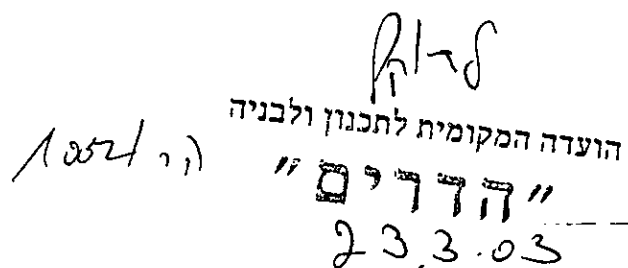 הועדה המקומית לתכנון ולבניה
"הדרים"
הר/1052
23.3.03